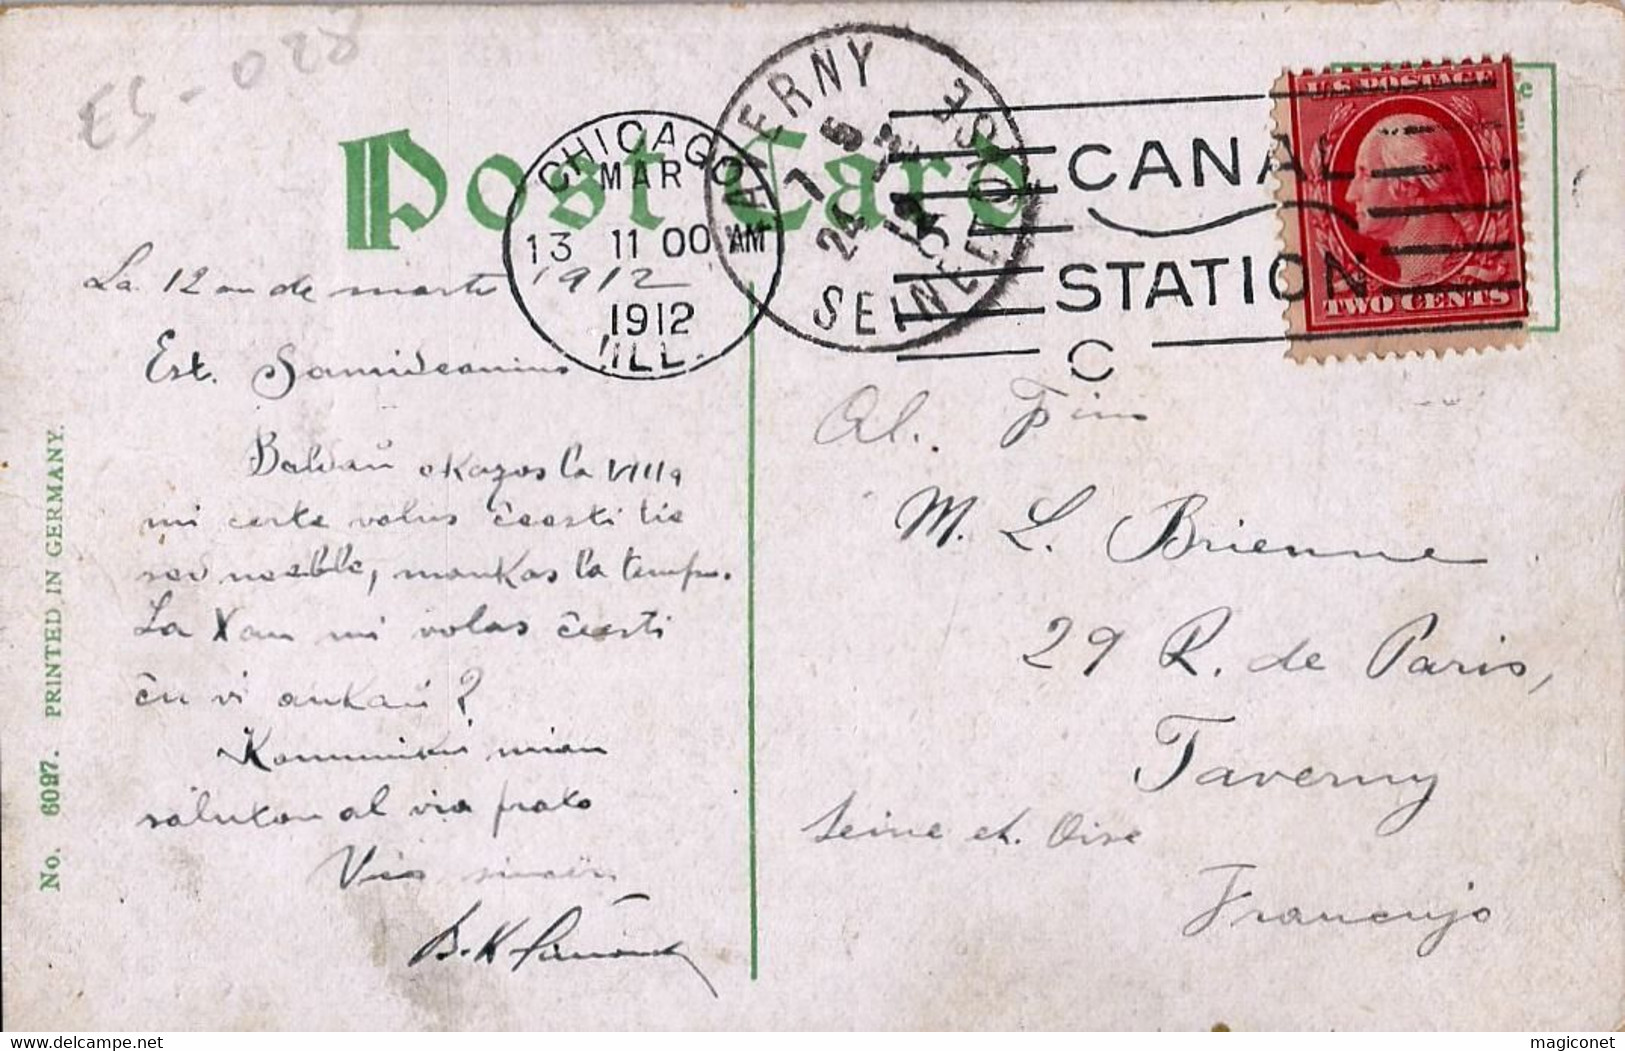 ES-028
Post Card
CHICAGO
MAR
13 11 00 AM
1912
ILL.
TAVERNY
7 5
24 3
12
SEINE ET OISE
CANAL
STATION
C
U.S. POSTAGE
TWO CENTS
La 12an de marto 1912
Est. Samideanino
Baldaŭ okazos la VIIIa
mi certe volus ĉeesti tie
sed neeble, mankas la tempo.
La Xan mi volas ĉeesti
ĉu vi ankaŭ?
Komunikū mian
saluton al via frato
Via
B.K.
Al. Fino
M. L. Brienne
29 R. de Paris,
Taverny
Seine et. Oise
Francujo
No. 6097. PRINTED IN GERMANY.
magiconet
www.delcampe.net